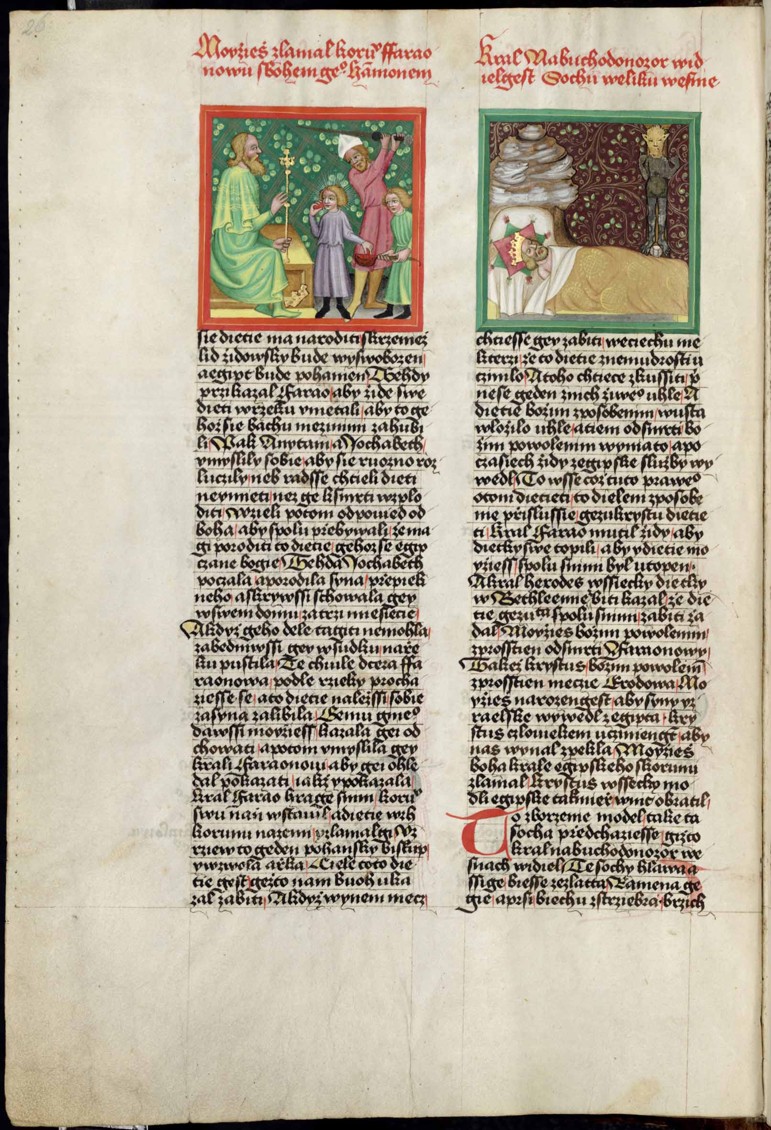 Moyzies zlamal korunu ffarao
nowu s bohem geho hamonem
sie dietie ma naroditi skrzemez
lid zidowsky bude wyswobozen
aegipt bude pohanien Tehdy
przikazal Farao aby zide swe
dieti w rzeku vmetali aby to ge
hoz sie bachu mezi nimi zahubi
li Pak Amram a Jochabeth
vmyslily sobie aby sie ruozno roz
luczily neb radsse chtieli dieti
neymieti nez ge k smrti wzplo
diti Wzieli potom odpowied od
boha aby spolu przebywali ze ma
gi poroditi to dietie gehoz se egip
czane bogie Tehda Jochabeth
poczala a porodila syna przepiek
neho a skrywssi schowala gey
w swem domu za trzi miesiecie
A kdyz geho dele tagiti nemohla
zabedniwssi gey w sudku na rze
ku pustila Te chwile dcera ffa
raonowa podle rzieky procha
ziesse se a to dietie nalezssi sobie
za syna zalibila Gemu gmeno
dawssi moyziess kazala gei od
chowati a potom vmyslila gey
krali Faraonowi aby gei ohle
dal pokazati iakz y pokazala
Kral Farao hrage s nim korunu
swu nan wstawil a dietie wrh
korunu na zemi y zlamal gi Vz
rziew to geden pohansky biskup
y wzwola arka Ciele toto die
tie gest gezto nam buoh uka
zal zabiti A kdyz wynem mecz
Kral Nabuchodonozor wid
iel gest Sochu weliku we snie
chtiesse gey zabiti weciechu nie
kterzi ze to dietie z nemudrosti u
czinilo A toho chtiece zkussiti przi
nese geden z nich ziwe uhle A
dietie bozim zposobenim w usta
wlozilo uhle a tiem od smrti bo
zim powolenim wyniato a po
czasiech zidy z egipske sluzby wy
wedl To wsse coz tuto prawe
o tom dietieti to dielem zposobe
nie przislussie gezukrystu dietie
ti Kral Farao mutil zidy aby
dietky swe topili aby y dietie mo
yziess spolu s nimi byl utopen
A kral herodes wssiecky dietky
w Bethleemie biti kazal ze die
tie gezusa spolu s nimi zabiti za
dal Moyzies bozim powolenim
zprosstien od smrti Faraonowy
Takez krystus bozim powolenim
zprosstien mecze Erodowa Mo
yzies narozen gest aby syny yz
raelske wywedl z egipta kry
stus czlowiekem uczinien gest aby
nas wynal z pekla Moyzies
boha krale egipskeho s korunu
zlamal Krystus wssecky mo
dli egipske takmierz w nic obratil
To zborzenie model take ta
socha przedchaziesse gizto
kral nabuchodonozor we
snach widiel Te sochy hlawa a
ssige biesse ze zlatta Ramena ge
gie a prsi biechu z strziebra brzich